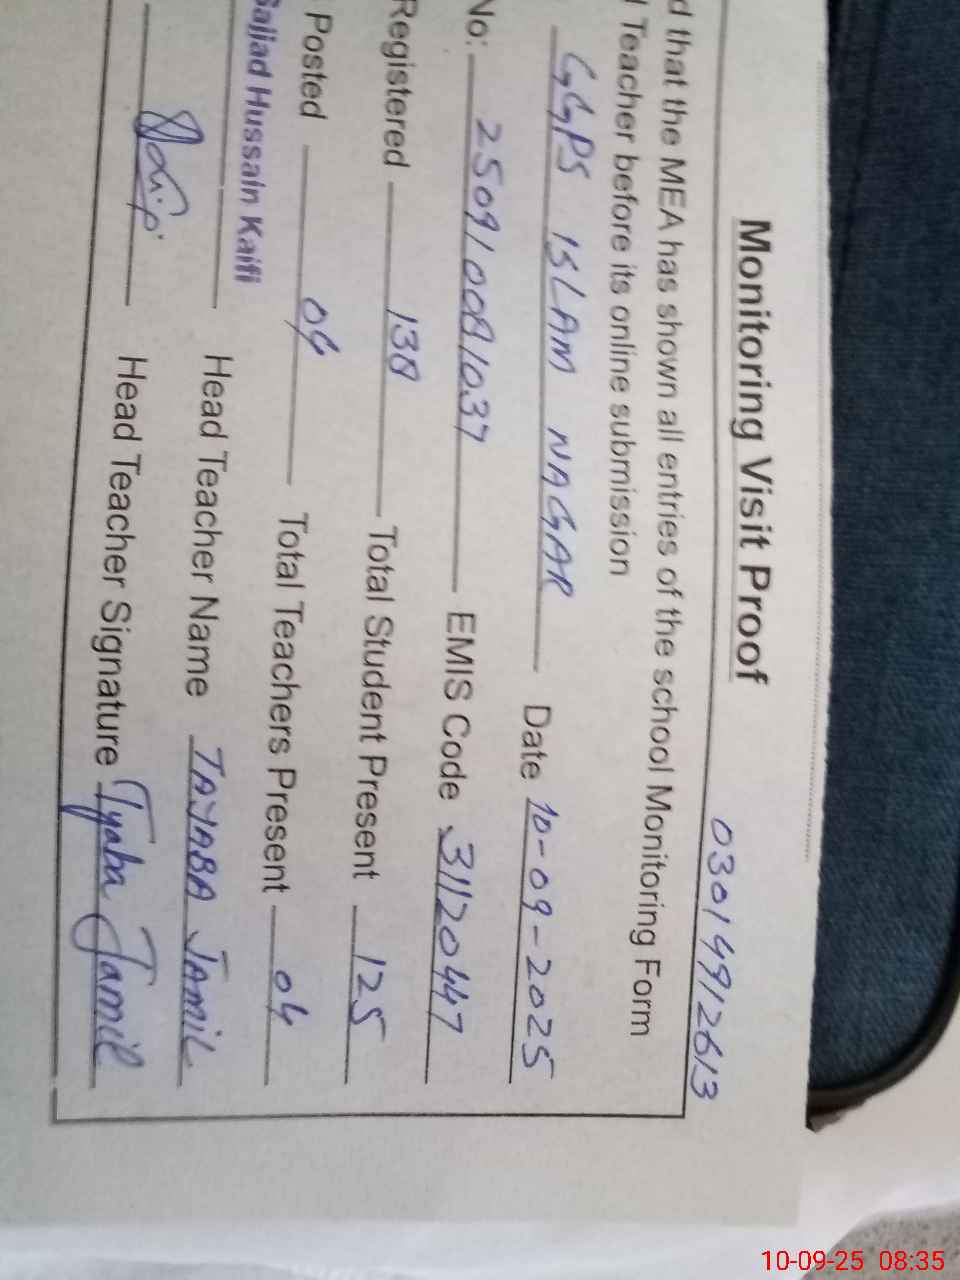 03014912613
Monitoring Visit Proof
d that the MEA has shown all entries of the school Monitoring Form
Teacher before its online submission
GGPS ISLAM NAGAR Date 10-09-2025
No: 250910081037 EMIS Code 31120447
Registered 138 Total Student Present 125
Posted 04 Total Teachers Present 04
Sajjad Hussain Kaifi Head Teacher Name TAYABA JAMIL
Head Teacher Signature Tyaba Jamil
10-09-25 08:35